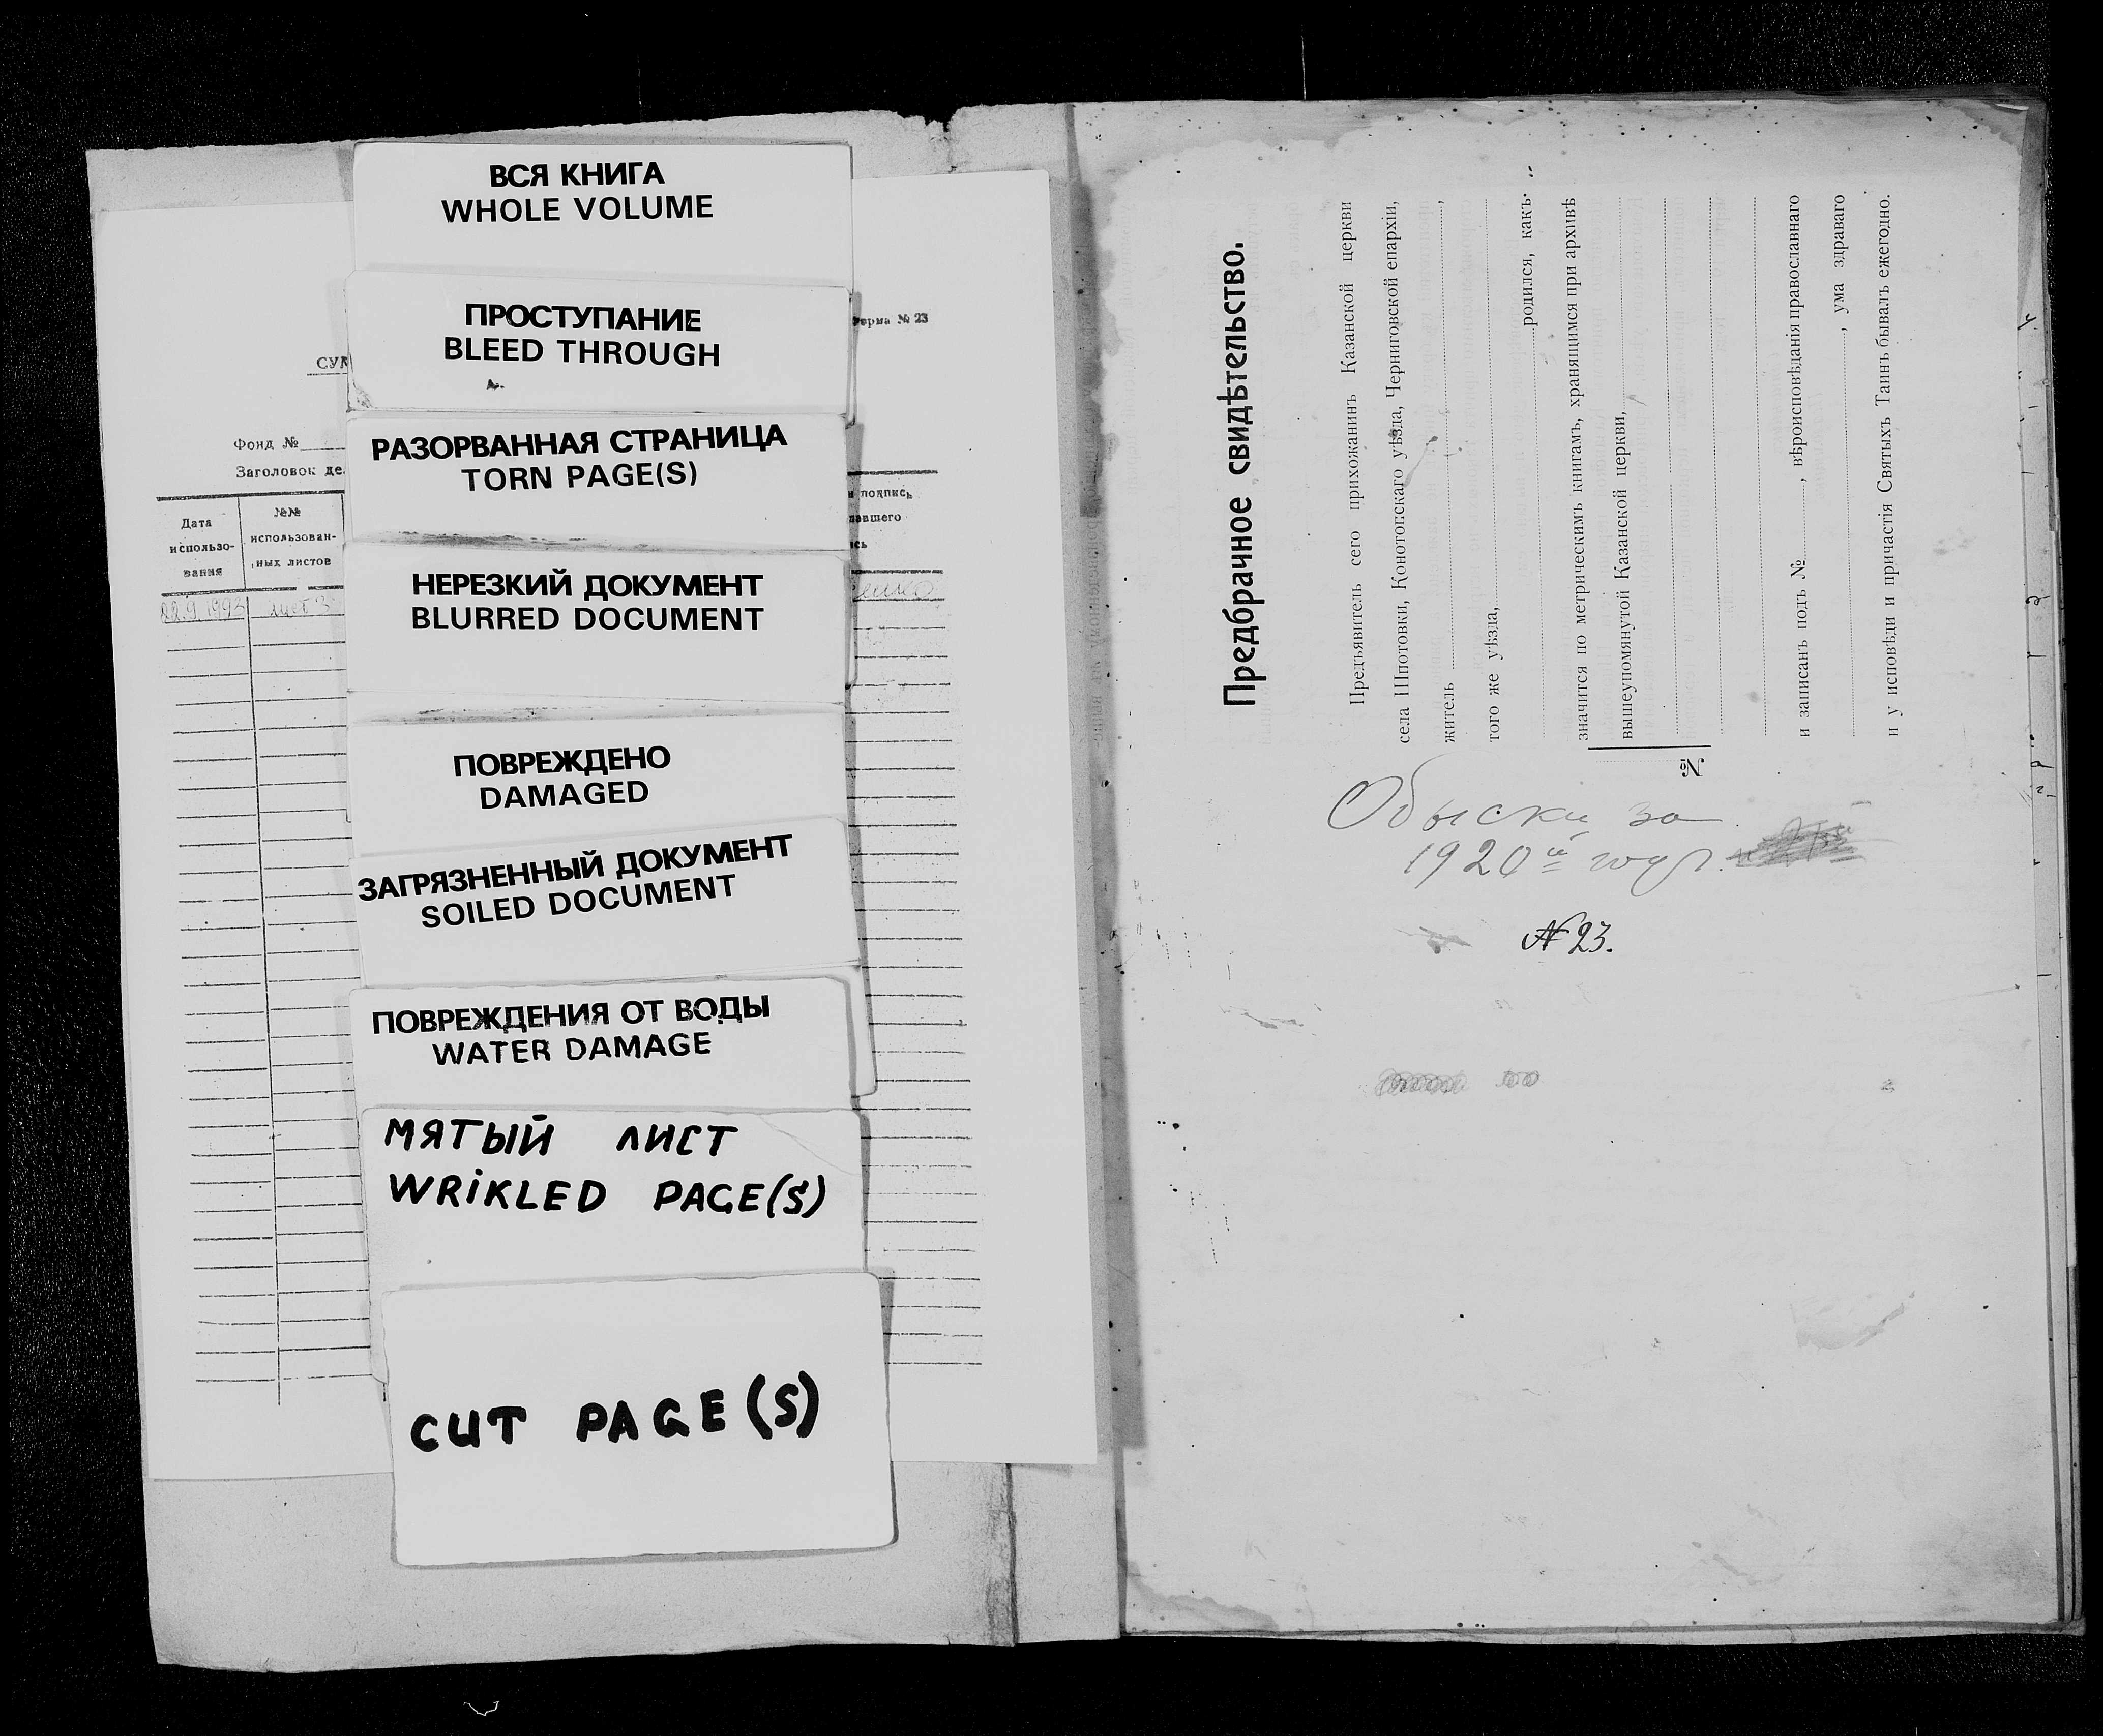 ВСЯ КНИГА
WHOLE VOLUME
ПРОСТУПАНИЕ
BLEED THROUGH
РАЗОРВАННАЯ СТРАНИЦА
TORN PAGE(S)
НЕРЕЗКИЙ ДОКУМЕНТ
BLURRED DOCUMENT
ПОВРЕЖДЕНО
DAMAGED
ЗАГРЯЗНЕННЫЙ ДОКУМЕНТ
SOILED DOCUMENT
ПОВРЕЖДЕНИЯ ОТ ВОДЫ
WATER DAMAGE
МЯТЫЙ ЛИСТ
WRIKLED PAGE(S)
CUT PAGE(S)
№ 23
Фонд №
Заголовок
Дата
использо-
вания
№№
использован-
ных листов
подпись
22.9.1993 лист 3
Предбрачное свидѣтельство.
Предъявитель сего прихожанинъ Казанской церкви
села Шпотовки, Конотопскаго уѣзда, Черниговской епархіи,
житель ,
того же уѣзда,
родился, какъ
значится по метрическимъ книгамъ, хранящимся при архивѣ
вышеупомянутой Казанской церкви,
и записанъ подъ № , вѣроисповѣданія православнаго
, ума здраваго
и у исповѣди и причастія Святыхъ Таинъ бывалъ ежегодно.
№
Обыски за
1920й год.
№ 23.